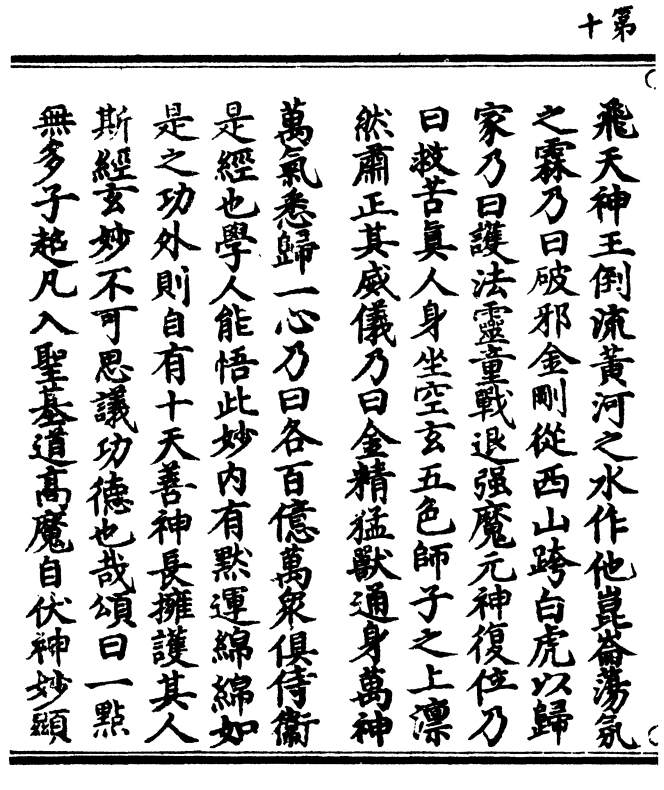 第十
飛天神王倒流黃河之水作他崑崙蕩氛
之霖乃曰破邪金剛從西山跨白虎以歸
家乃曰護法靈童戰退强魔元神復位乃
曰救苦眞人身坐空玄五色師子之上凛
然肅正其威儀乃曰金精猛獸通身萬神
萬氣悉歸一心乃曰各百億萬衆俱侍衞
是經也學人能悟此妙內有默運綿綿如
是之功外則自有十天善神長擁護其人
斯經玄妙不可思議功德也哉頌曰一點
無多子超凡入聖基道高魔自伏神妙顯